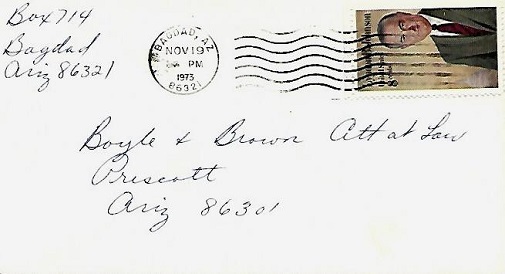 Box 714
Bagdad
Ariz 86321
BAGDAD, AZ
NOV 19
PM
1973
86321
Boyle & Brown Att at Law
Prescott
Ariz 86301